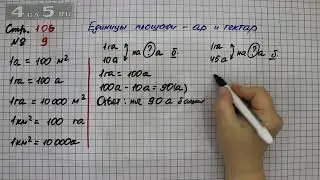 4 по 5.ru
Стр. 106
№ 9
Единицы площади - ар и гектар
1а = 100 м²
1га = 100 а
1га = 10 000 м²
1км² = 100 га
1км² = 10 000а
1га
10а
на ? а б.
1га = 100а
100а - 10а = 90(а)
Ответ: на 90 а больше
1га
45а
на ? а б.